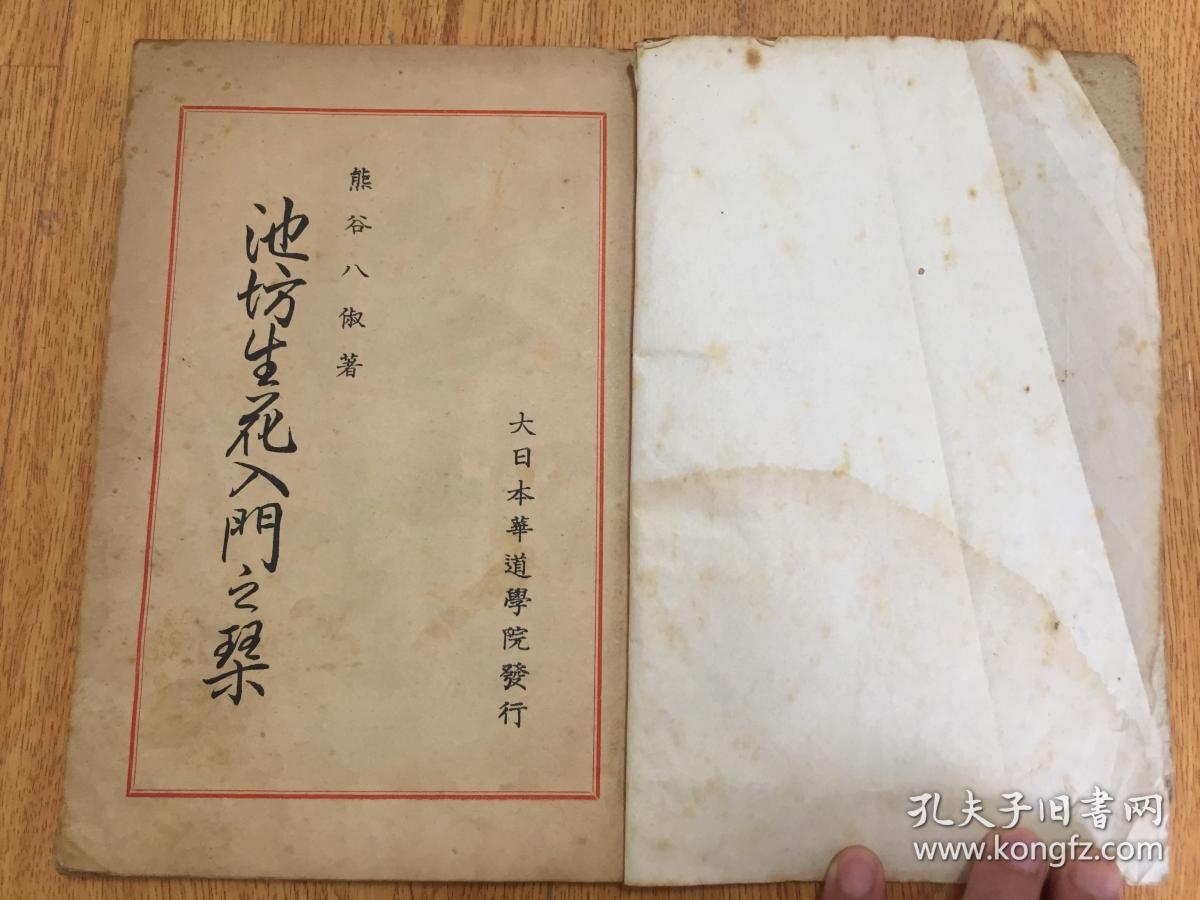 大日本華道學院發行
熊谷八俶著
池坊生花入門之栞
孔夫子旧書网
www.kongfz.com